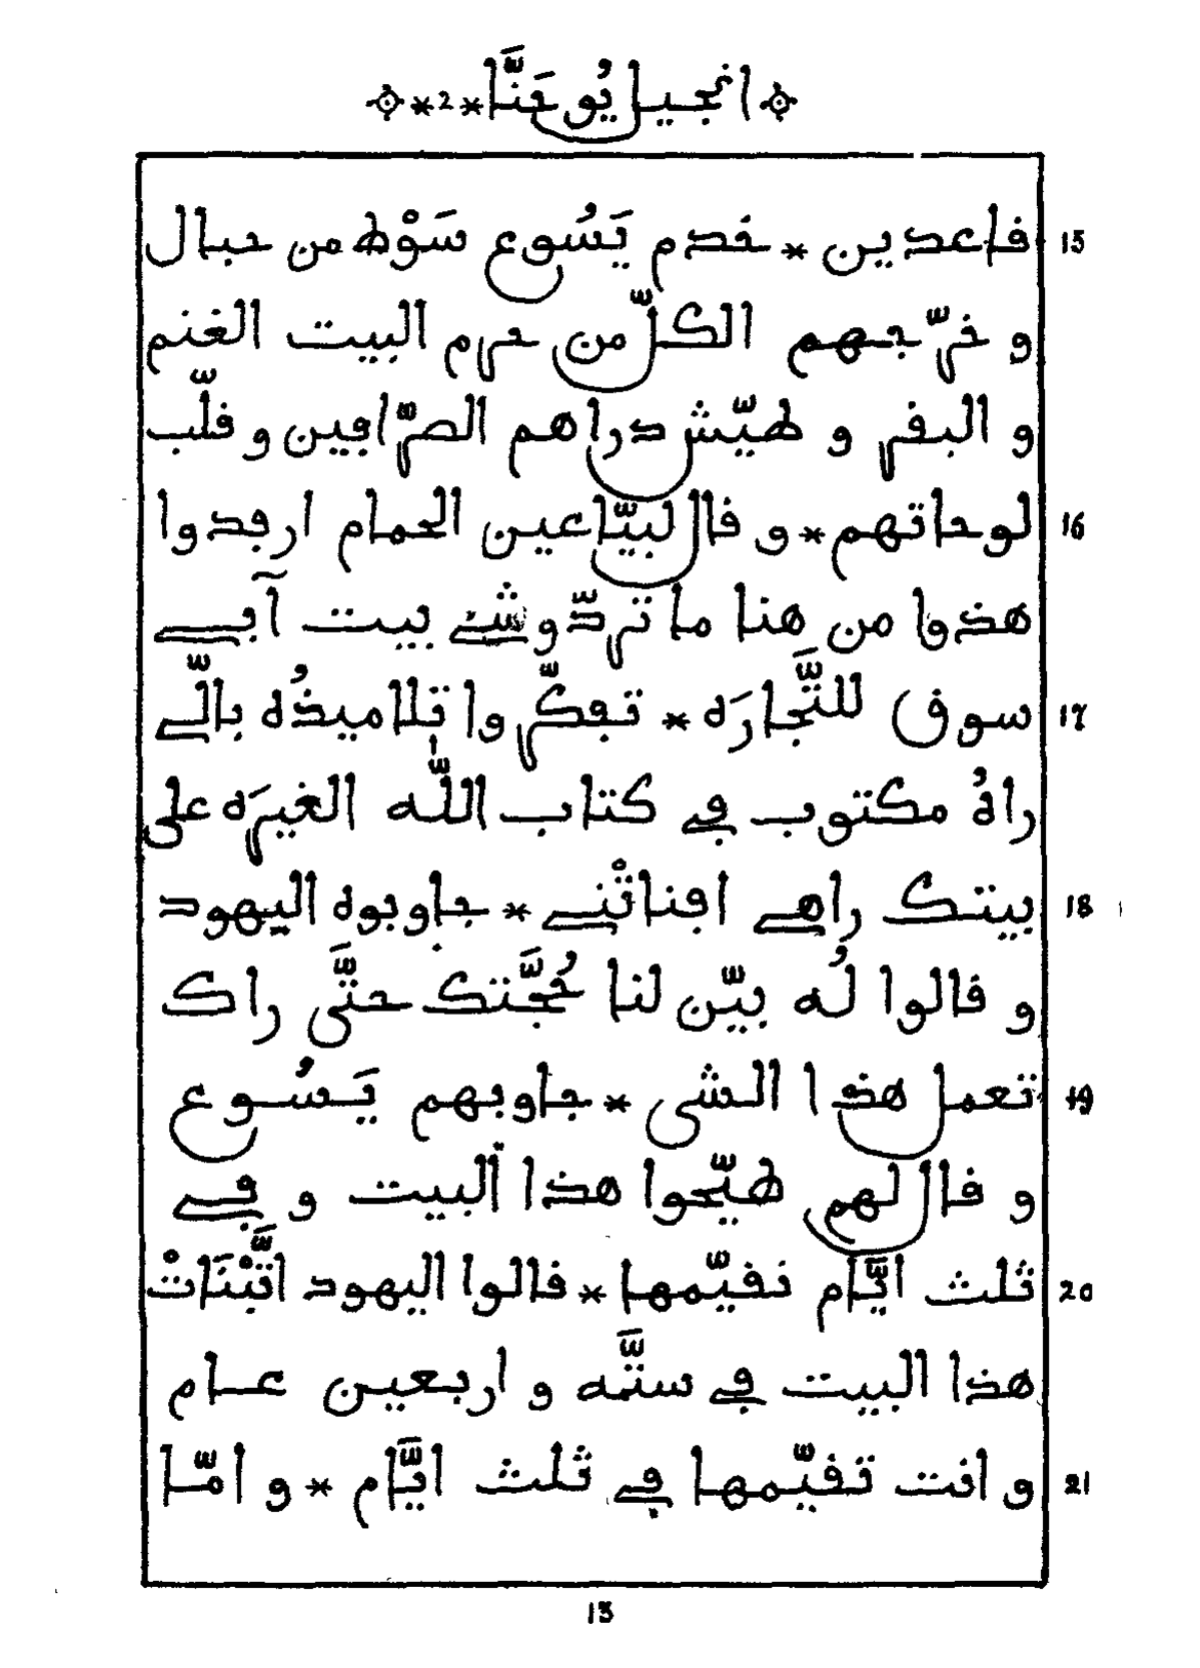 انجيل يُوحَنَّا *2*
15 قاعدين * خَدم يَسُوع سَوْط من حبال
و خرّجهم الكلّ من حرم البيت الغنم
و البقر و طيّش دراهم الصرّافين و قلّب
16 لوحاتهم * و قال لبيّاعين الحمام ارفدوا
هذوا من هنا ما تردّوشي بيت آبي
17 سوق للتَّجارَه * تفكّروا تلاميذُه بالّي
راهُ مكتوب في كتاب اللّٰه الغيرَه على
18 بيتك راهي افناتْني * جاوبوه اليهود
و قالوا لُه بيّن لنا حُجَّتك حتَّى راك
19 تعمل هذا الشي * جاوبهم يَسُوع
و قال لهم طيّحوا هذا البيت و في
20 ثلث ايَّام نقيّمها * قالوا اليهود اتَّبْنَاتْ
هذا البيت في ستَّه و اربعين عام
21 و انت تقيّمها في ثلث ايَّام * و امّا
13